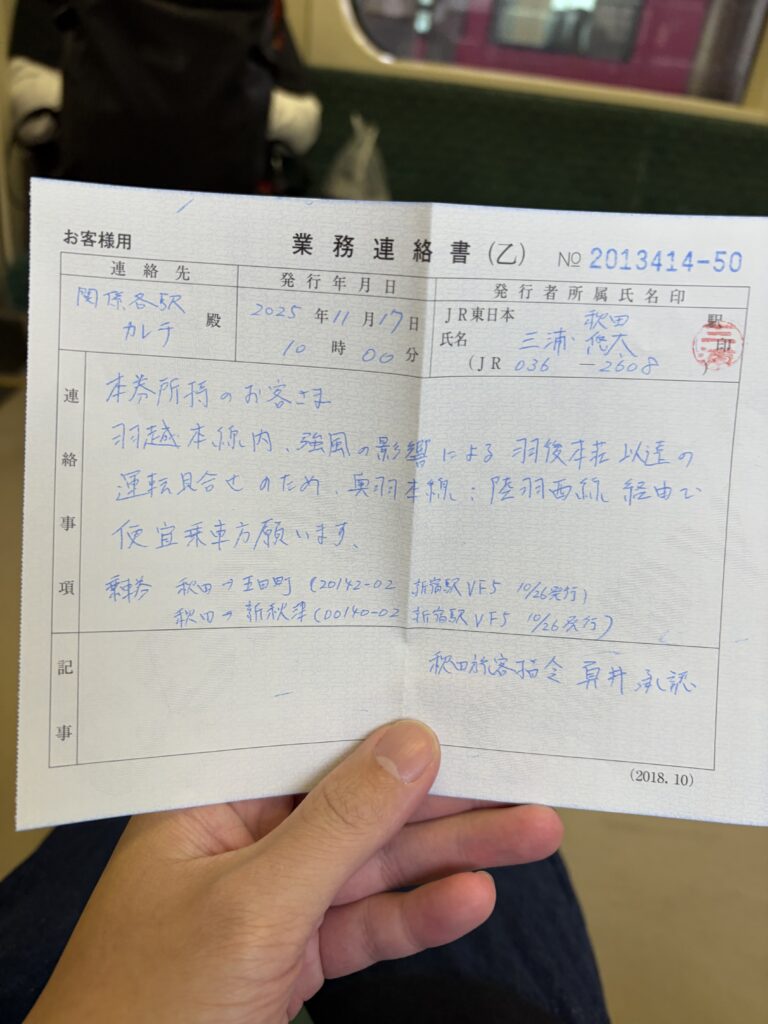 お客様用
業務連絡書(乙) № 2013414-50
連絡先
関係各駅
カレチ 殿
発行年月日
2025年11月17日
10時00分
発行者所属氏名印
JR東日本 秋田 駅
氏名 三浦 悠太 印
(JR 036 - 2608 )
連絡事項
本券所持のお客さま
羽越本線内、強風の影響による羽後本荘以遠の
運転見合せのため、奥羽本線:陸羽西線経由で
便宜乗車方願います、
乗車券 秋田→五日町(20142-02 新宿駅VF5 10/26発行)
秋田→新秋津(00140-02 新宿駅VF5 10/26発行)
記事
秋田旅客指令 承認
(2018.10)